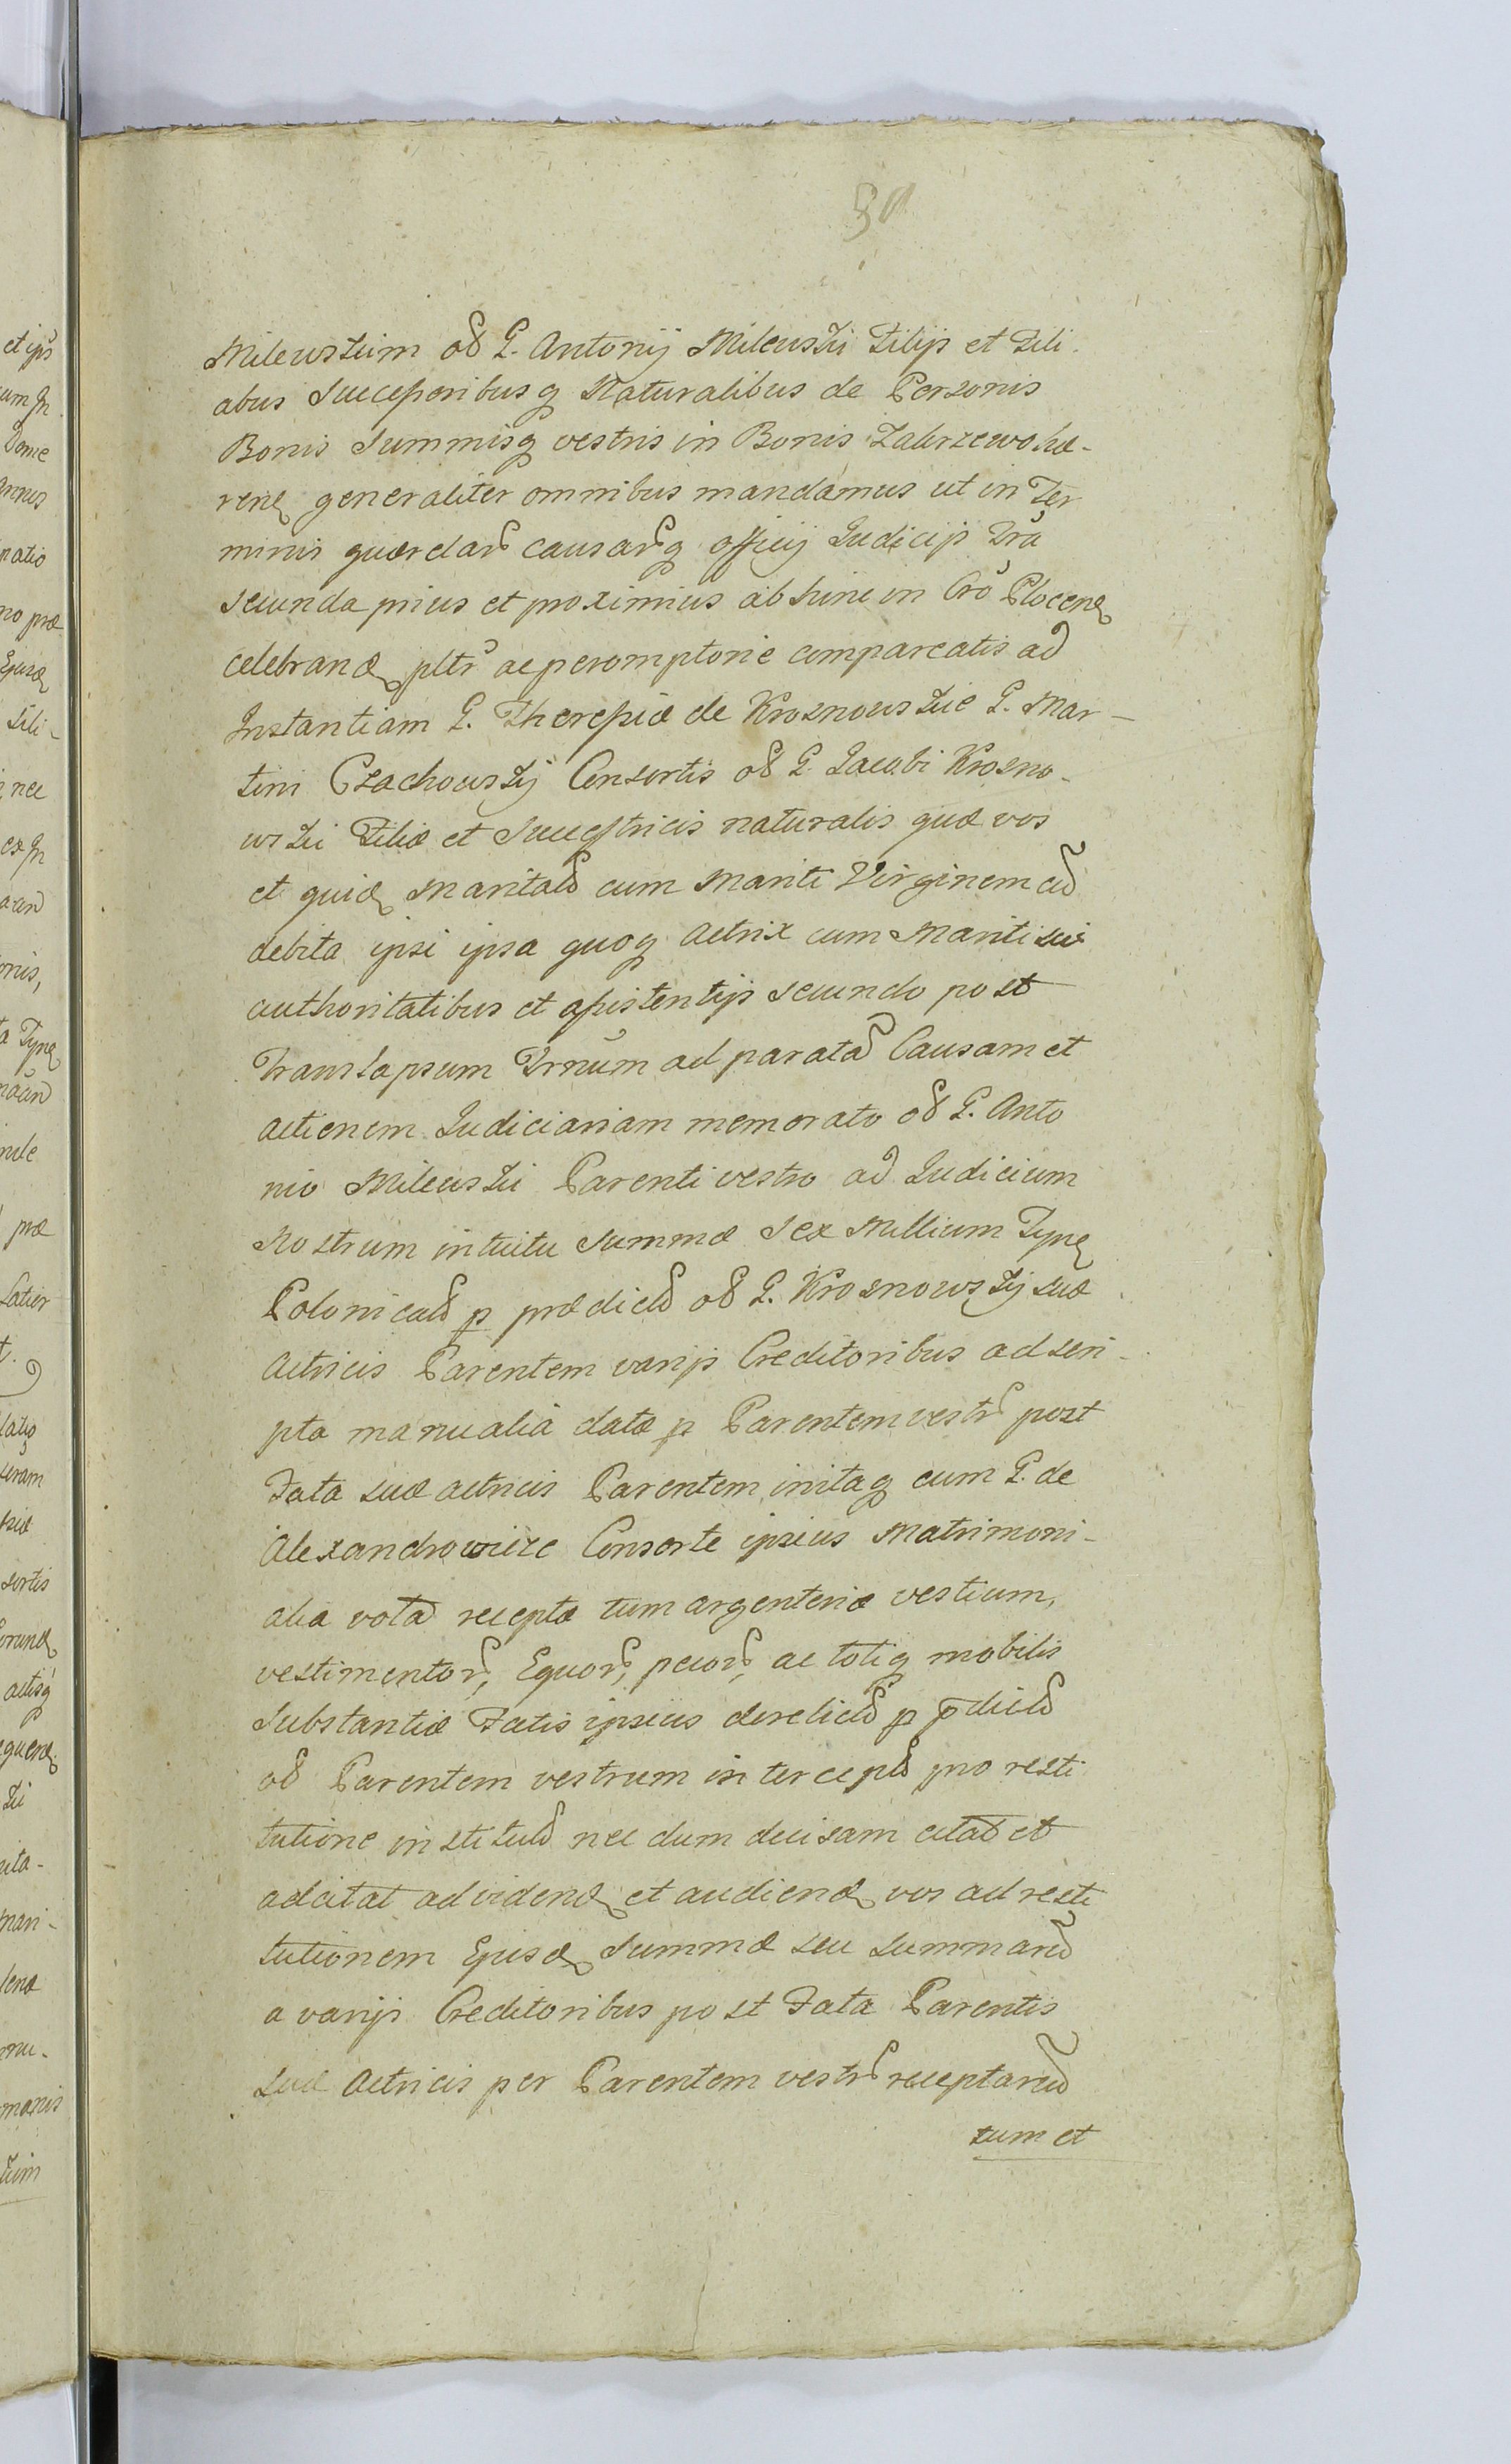 Milewskim od G. Antonij Milewski Filijs et Fili.
abus Successoribusq Naturalibus de Personis
Bonis Summisq vestris in Bonis Zakrzewo hæ-
rend generaliter omnibus mandamus ut in Ter
minis querelar causarq officij Judicijs Tra
secunda prius et proximius abhinc in Cro Plocen
celebrand pltr ac peremptorie compareatis ad
Instantiam G. Theressiæ de Krosnowskie G. Mar-
tini Czachowskij Consortis od G. Jacobi Krosno-
wski Filiæ et Succestricis naturalis quæ vos
et quid maritad cum Mariti Virginem cd
debita ipsi ipsa quoq Actrix cum Mariti sui
authoritatibus et assistentijs secundo post
Translapsum Trnum ad paratā Causam et
actionem Judiciariam memorato od G. Anto
nio Milewski Parenti vestro ad Judicium
Nostrum intuitu Summæ Sex Millium Fyn
Polonicad p prædictd od G. Krosnowskij suæ
Actricis Parentem varijs Creditoribus ad scri-
pta manualia datæ p Parentem vestr post
Fata suæ actricis Parentem initaq cum G. de
Alexandrowicze Consorte ipsius Matrimoni-
alia vota receptæ tum argenteriæ vestium,
vestimentor, Equor, pecor, ac totiq mobilis
Substantiæ Fatis ipsius derelictd p pdictd
od Parentem vestrum interceptd pro resti
tutione institutd nec dum decisam citat et
adcitat ad vidend et audiend vos ad resti
tutionem Ejusd Summæ seu Summard
a varijs Creditoribus post Fata Parentis
suæ Actricis per Parentem vestr receptard
tum et